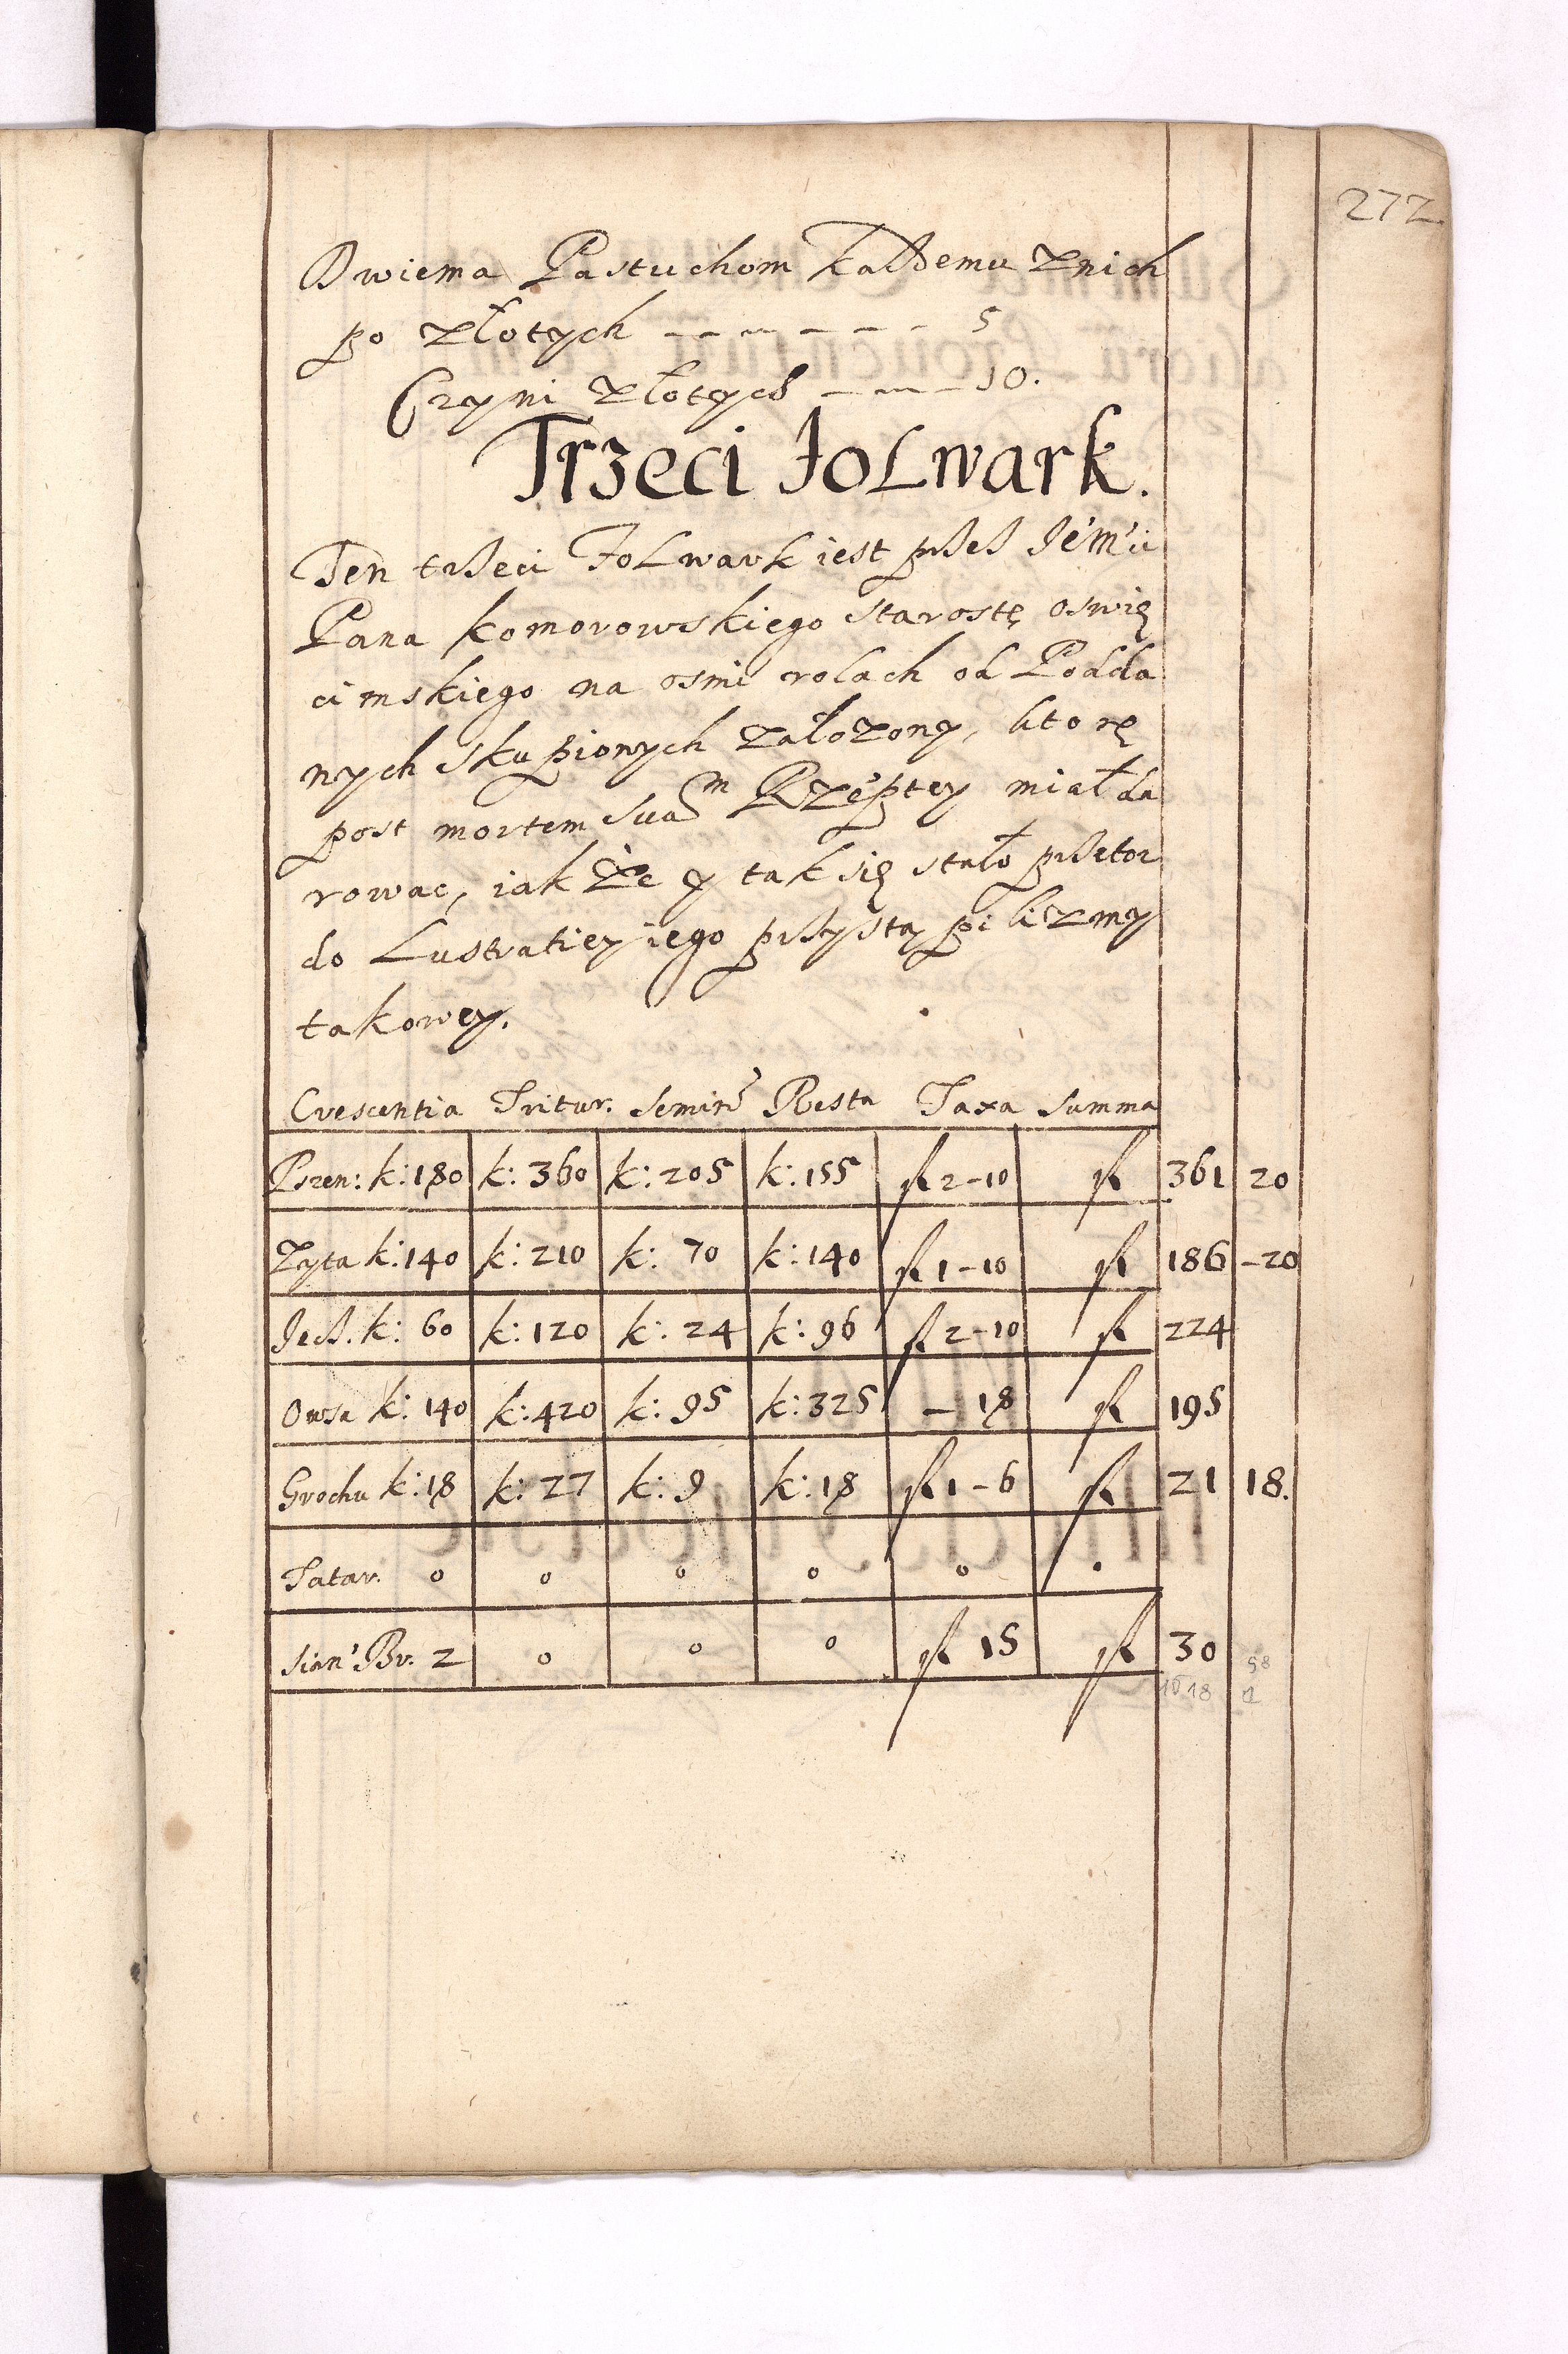 272
Dwiema Pastuchom każdemu znich
po złotych 5
Czyni złotych 10.
Trzeci Folwark.
Ten trzeci Folwark iest przez Jeᵒmᶜi
Pana Komorowskiego starostę oswię
cimskiego na osmi rolach od Podda
nych skupionych założony, ktorę
post mortem suam Rzeptey miał da
rowac, iakże y tak się stało przeto z
do Lustratiey iego przystąpilizmy
takowey.
Crescentia Tritur. Semin Resta Taxa Summa
Pszen: k: 180 k: 360 k: 205 k: 155 fl 2-10 fl 361 20
Zyta k: 140 k: 210 k: 70 k: 140 fl 1-10 fl 186 -20
Jecz. k: 60 k: 120 k: 24 k: 96 fl 2-10 fl 224
Owsa k: 140 k: 420 k: 95 k: 325 - 18 fl 195
Grochu k: 18 k: 27 k: 9 k: 18 fl 1-6 fl 21 18.
Tatar. 0 0 0 0 0 .
Sian' Br. 2 0 0 0 fl 15 fl 30
1018 58